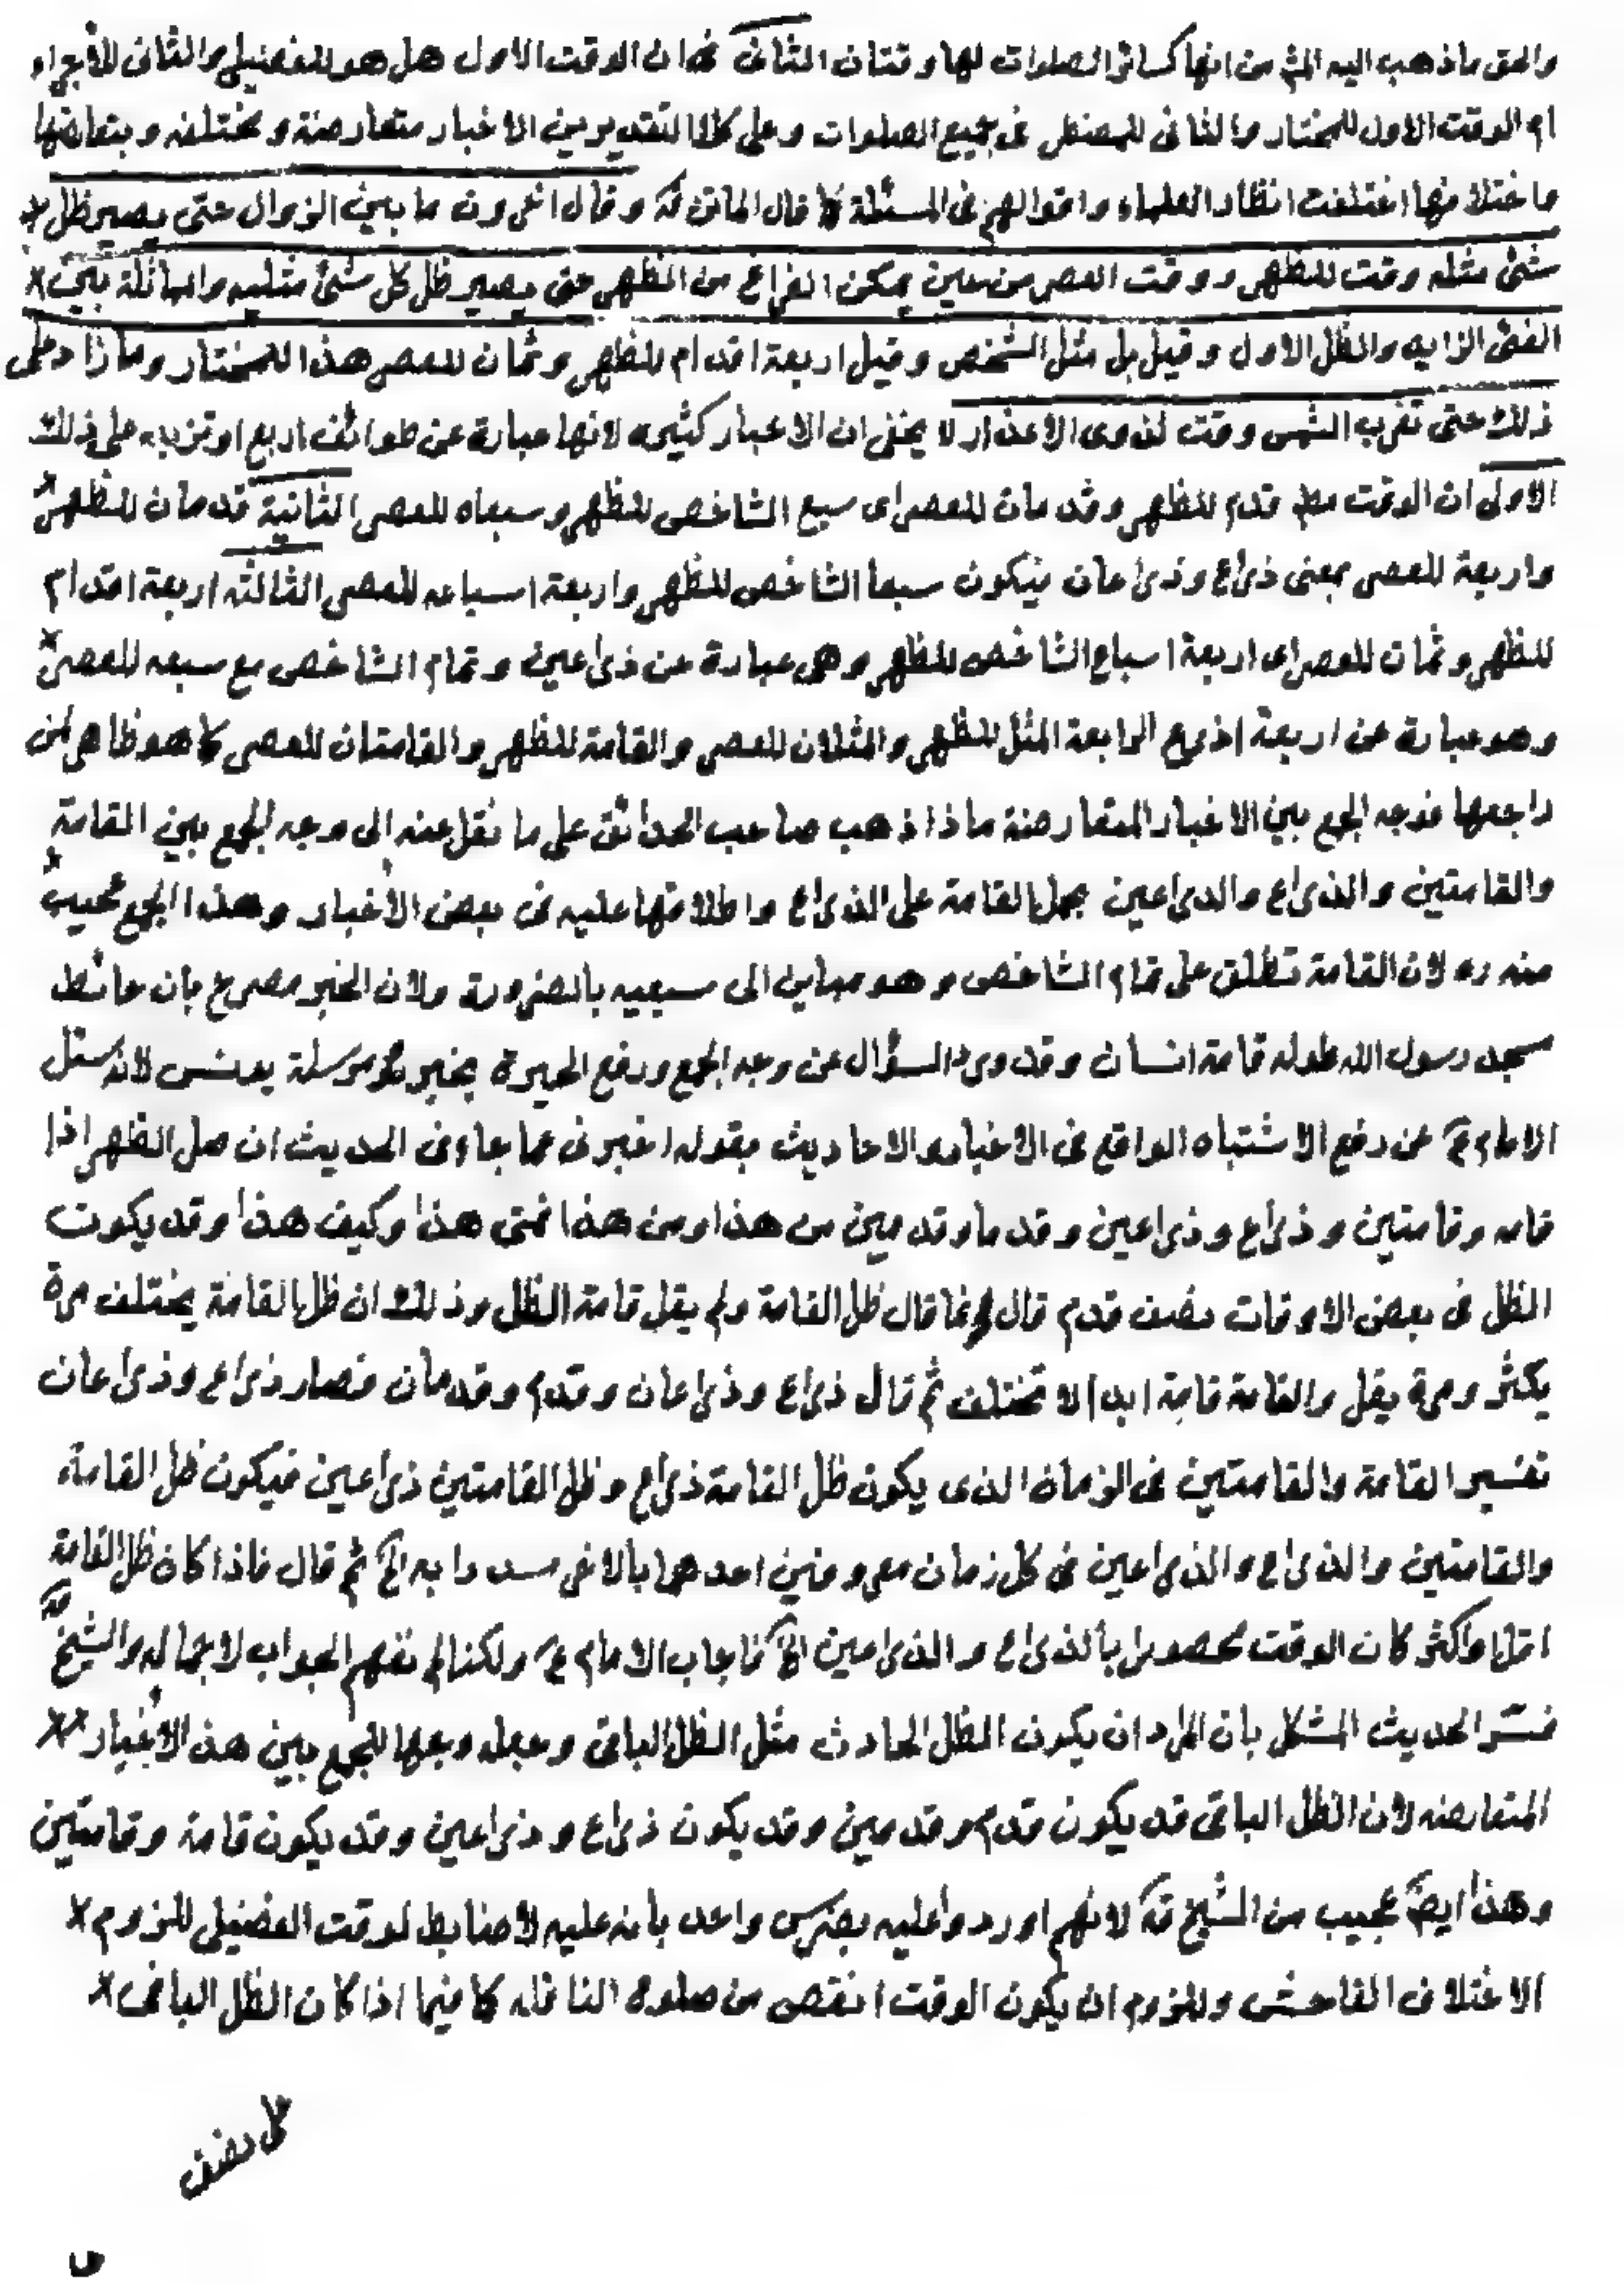 والحق ما ذهب اليه المش من انها كسائر الصلوات لها وقتان الثانى فى ان الوقت الاول هل هو للفضيلى والثانى للاجراء
ام الوقت الاول للمختار والثانى للمضطر فى جميع الصلوات وعلى كلا التقديرين الاخبار متعارضة ومختلفه وبتعارضها
ماختلافها اختلفت انظار العلماء واقوالهم فى المسئلة كما قال الماتن قه وقال اخرون ما بين الزوال حتى يصير ظل كل
شئ مثله وقت للظهر ووقت العصر من حين يمكن الفراغ من الظهر حتى يصير ظل كل شئ مثليه والمماثلة بين
الفئ الزايد والظل الاول وقيل بل مثل الشخص وقيل اربعة اقدام للظهر وثمان للعصر هذا للمختار وما زاد على
ذلك حتى تغرب الشمس وقت لذوى الاعذار لا يخفى ان الاخبار كثيره لانها عبارة عن طوائف اربع او تزيد على ذلك
الاولى ان الوقت قدم للظهر وقدمان للعصر اى سبع الشاخص للظهر وسبعاه للعصر الثانية قدمان للظهر
واربعة للعصر بمعنى ذراع وذراعان فيكون سبعا الشاخص للظهر واربعة اسباعه للعصر الثالثه اربعة اقدام
للظهر وثمان للعصر اى اربعة اسباع الشاخص للظهر وهى عبارة عن ذراعين وتمام الشاخص مع سبعه للعصر
وهو عبارة عن اربعة اذرع الرابعة المثل للظهر والمثلان للعصر والقامة للظهر والقامتان للعصر كما هو ظاهر لمن
راجعها فوجه الجمع بين الاخبار المتعارضنة ماذا ذهب صاحب الحدائق على ما نقل عنه الى وجه الجمع بين القامة
والقامتين والذراع والذراعين بحمل القامة على الذراع واطلاقها عليه فى بعض الأخبار وهذا الجمع عجيب
منه ره لان القامة تطلق على تمام الشاخص وهو مباين الى سبعيه بالضرورة ولان الخبر مصرح بان حائط
مسجد رسول الله طوله قامة انسان وقد ورد السؤال عن وجه الجمع ورفع الحيرة بخبر مرسلة يونس لانه سئل
الامام ع عن رفع الاشتباه الواقع فى الاخبار والاحاديث بقوله اخبرنى عما جاء فى الحديث ان صل الظهر اذا
قامه وقامتين وذراع وذراعين وقدما وقدمين من هذا ومن هذا فمتى هذا وكيف هذا وقد يكون
الظل فى بعض الاوقات نصف قدم قال ع انما قال ظل القامة ولم يقل قامة الظل وذلك ان ظل القامة يختلف مرة
يكثر ومرة يقل والقامة قامة ابدا لا تختلف ثم قال ذراع وذراعان وقدم وقدمان فصار ذراع وذراعان
تفسير القامة والقامتين فى الزمان الذى يكون ظل القامة ذراع وظل القامتين ذراعين فيكون ظل القامة
والقامتين والذراع والذراعين فى كل زمان معروفين احدهما بالاخر مسددا به الخ ثم قال فاذا كان ظل القامة
اقل او اكثر كان الوقت محصورا بالذراع والذراعين الخ فاجاب الامام ع ولكنا لم نفهم الجواب لاجماله والشيخ قه
فسّر الحديث المشكل بان المراد ان يكون الظل الحادث مثل الظل الباقى وجعله وجها للجمع بين هذه الأخبار
المتعارضه لان الظل الباقى قد يكون قدم وقدمين وقد يكون ذراع وذراعين وقد يكون قامة وقامتين
وهذا ايضا عجيب من الشيخ قه لانهم اوردوا عليه بضرس واحد بانه عليه لا ضابط لوقت الفضيلى للزوم
الاختلاف الفاحش وللزوم ان يكون الوقت انقص من صلوة النافله كما فيما اذا كان الظل الباقى